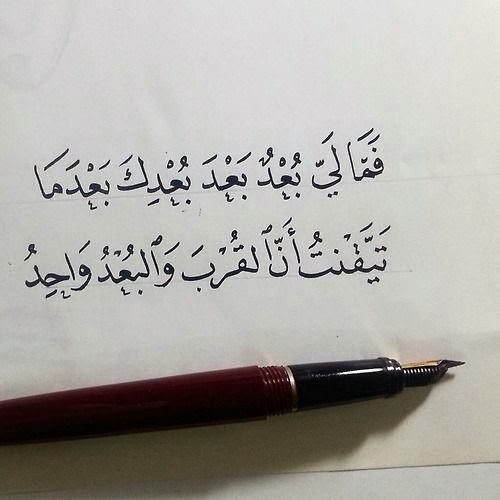 فَمَّا لَيّ بُعْدٌ بَعْدَ بُعْدِكَ بَعْدَمَا
تَيَّقَنْتُ أَنَّ ٱلقُرْبَ وَٱلبُعْدُ وَاحِدُ